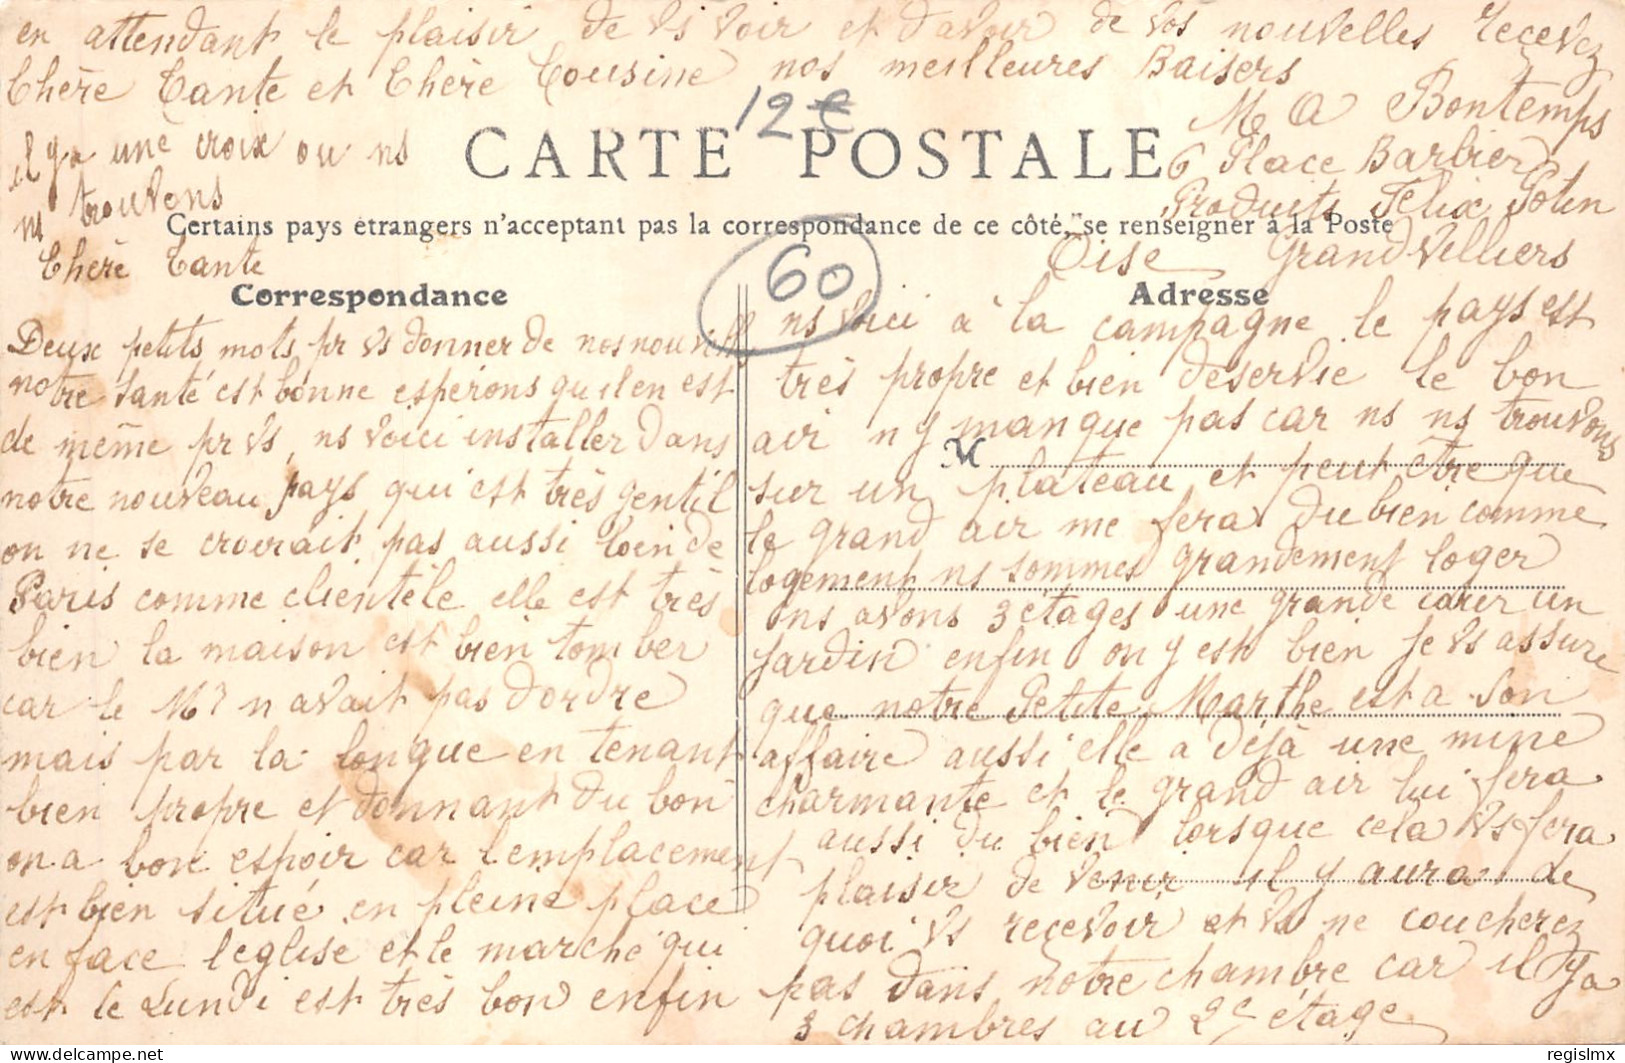 en attendant le plaisir de vs voir et d'avoir de vos nouvelles recevez
Chère Tante et Chère Cousine nos meilleures Baisers
12€
M A Bontemps
il y a une croix ou ns
CARTE POSTALE
6 Place Barbier
ns trouvons
Produits Félix Potin
Certains pays étrangers n'acceptant pas la correspondance de ce côté, se renseigner à la Poste
Oise Grandvilliers
Chère Tante
60
Correspondance
Deux petits mots pr vs donner de nos nouvlls
notre santé est bonne espérons qu il en est
de même pr vs, ns voici installer dans
notre nouveau pays qui est très gentil
on ne se croirait pas aussi loin de
Paris comme clientèle elle est très
bien la maison est bien tomber
car le Mr n avait pas d ordre
mais par la longue en tenant
bien propre et donnant du bon
on a bon espoir car l emplacement
est bien situé en pleine place
en face l eglise et le marché qui
est le Lundi est très bon enfin
Adresse
ns voici à la campagne le pays est
très propre et bien deservie le bon
air n y manque pas car ns ns trouvons
M
sur un plateau et peut être que
le grand air me fera du bien comme
logement ns sommes grandement loger
ns avons 3 étages une grande cour un
jardin enfin on y est bien je vs assure
que notre Petite Marthe est a son
affaire aussi elle a déjà une mine
charmante et le grand air lui fera
aussi du bien lorsque cela vs fera
plaisir de venir il y aura de
quoi vs recevoir et vs ne coucherez
pas dans notre chambre car il y a
3 chambres au 2e étage
regislmx